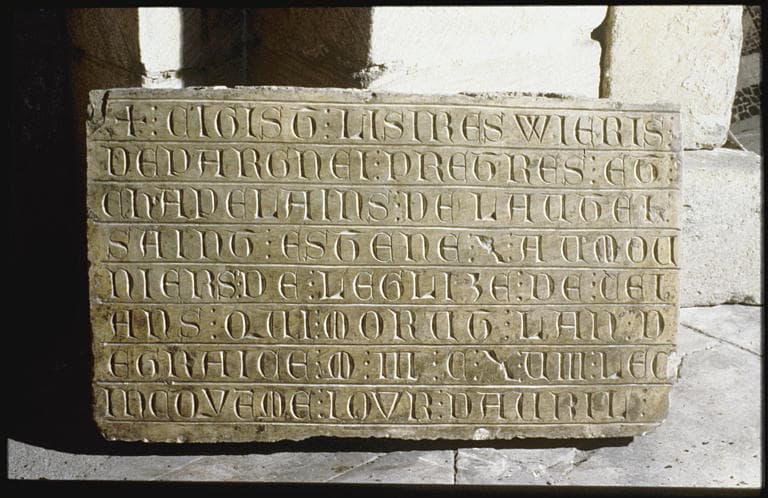 + : CI GIST : LI SIRES WIERIS :
DE PARGNEI : PRETRES : ET :
CHAPELAINS : DE LAUTEL
SAINT : ESTENE : & : AUMOU
NIERS : DE : LEGLIZE : DE : CEI
ANS : QUI : MORUT : LAN : D
E GRAICE : M : III : C : XUIII : LE C
INCQVEME : IOVR : DAURIL :